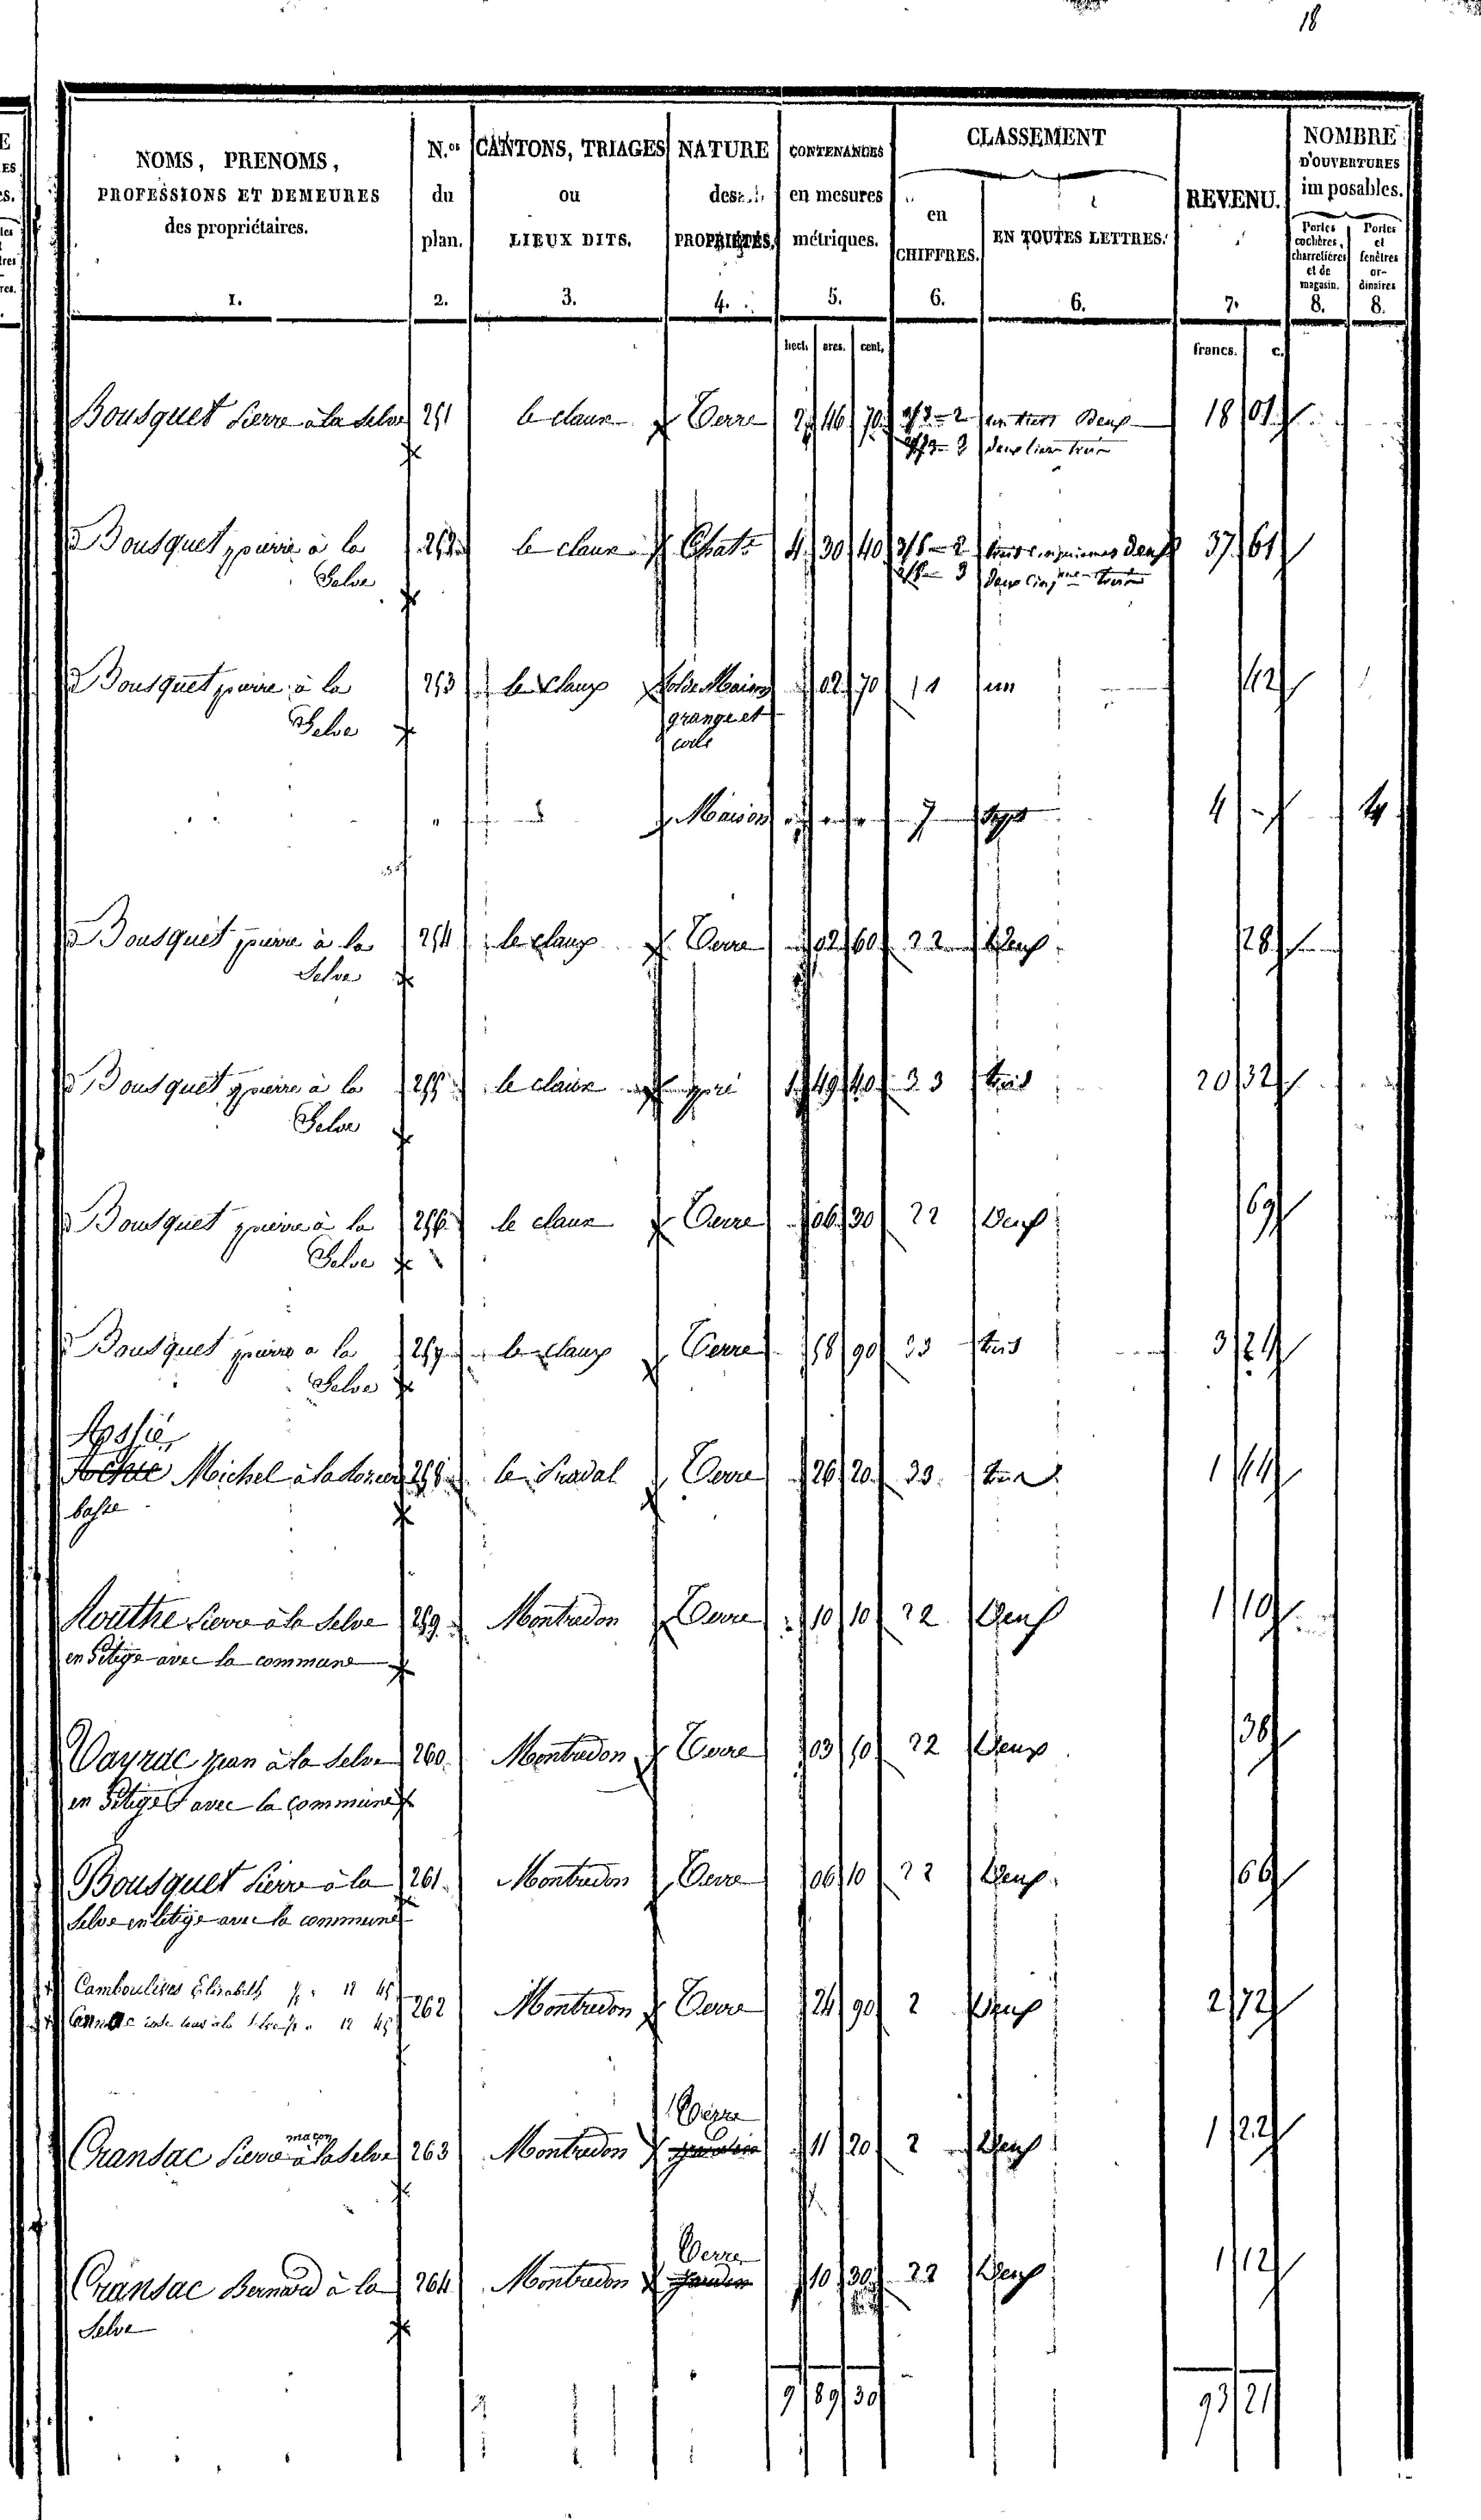 18
NOMS, PRENOMS,
PROFESSIONS ET DEMEURES
des propriétaires.
1.
N.os
du
plan.
2.
CANTONS, TRIAGES
ou
LIEUX DITS.
3.
NATURE
des
PROPRIÉTÉS.
4.
CONTENANCES
en mesures
métriques.
5.
CLASSEMENT
en
CHIFFRES.
6.
EN TOUTES LETTRES.
6.
REVENU.
7.
NOMBRE
D'OUVERTURES
imposables.
Portes cochères, charretières et de magasin.
8.
Portes et fenêtres ordinaires
8.
hect. ares. cent. francs. c.
Bousquet Pierre à la Selve 251 le claux Terre 2 46 70 1/3 - 2 un tiers Deux 18 01
2/3 - 3 deux tiers trois
Bousquet pierre à la 252 le claux 4 30 40 3/5 - 2 trois cinquiemes Deux 37 61
Selve 2/5 - 3 deux cinqmes trois
Bousquet pierre à la 253 le Claux Sol de Maison 02 70 1 un 42
Selve grange et
" Maison 7 Sept 4 - 4
Bousquet pierre à la 254 le claux Terre 02 60 2 2 Deux 28
Selve
Bousquet pierre à la 255 le claux pré 1 49 40 3 3 trois 20 32
Selve
Bousquet pierre à la 256 le claux Terre 06 30 22 Deux 69
Selve
Bousquet pierre a la 257 le claux Terre 58 90 33 trois 3 24
Selve
Michel à la 258 le Pradal Terre 26 20 33 trois 1 44
basse
Routhe Pierre à la Selve 259 Montredon Terre 10 10 22 Deux 1 10
en litige avec la commune
Vayrac jean à la Selve 260 Montredon Terre 03 50 22 Deux 38
en litige avec la commune
Bousquet Pierre à la 261 Montredon Terre 06 10 22 Deux 66
Selve en litige avec la commune
Camboulives Elisabeth 12 45
262 Montredon Terre 24 90 2 Deux 2 72
12 45
maçon Terre
Cransac Pierre à la Selve 263 Montredon 11 20 2 Deux 1 22
Terre
Cransac Bernard à la 264 Montredon jardin 10 30 22 Deux 1 12
Selve
9 89 30 93 21